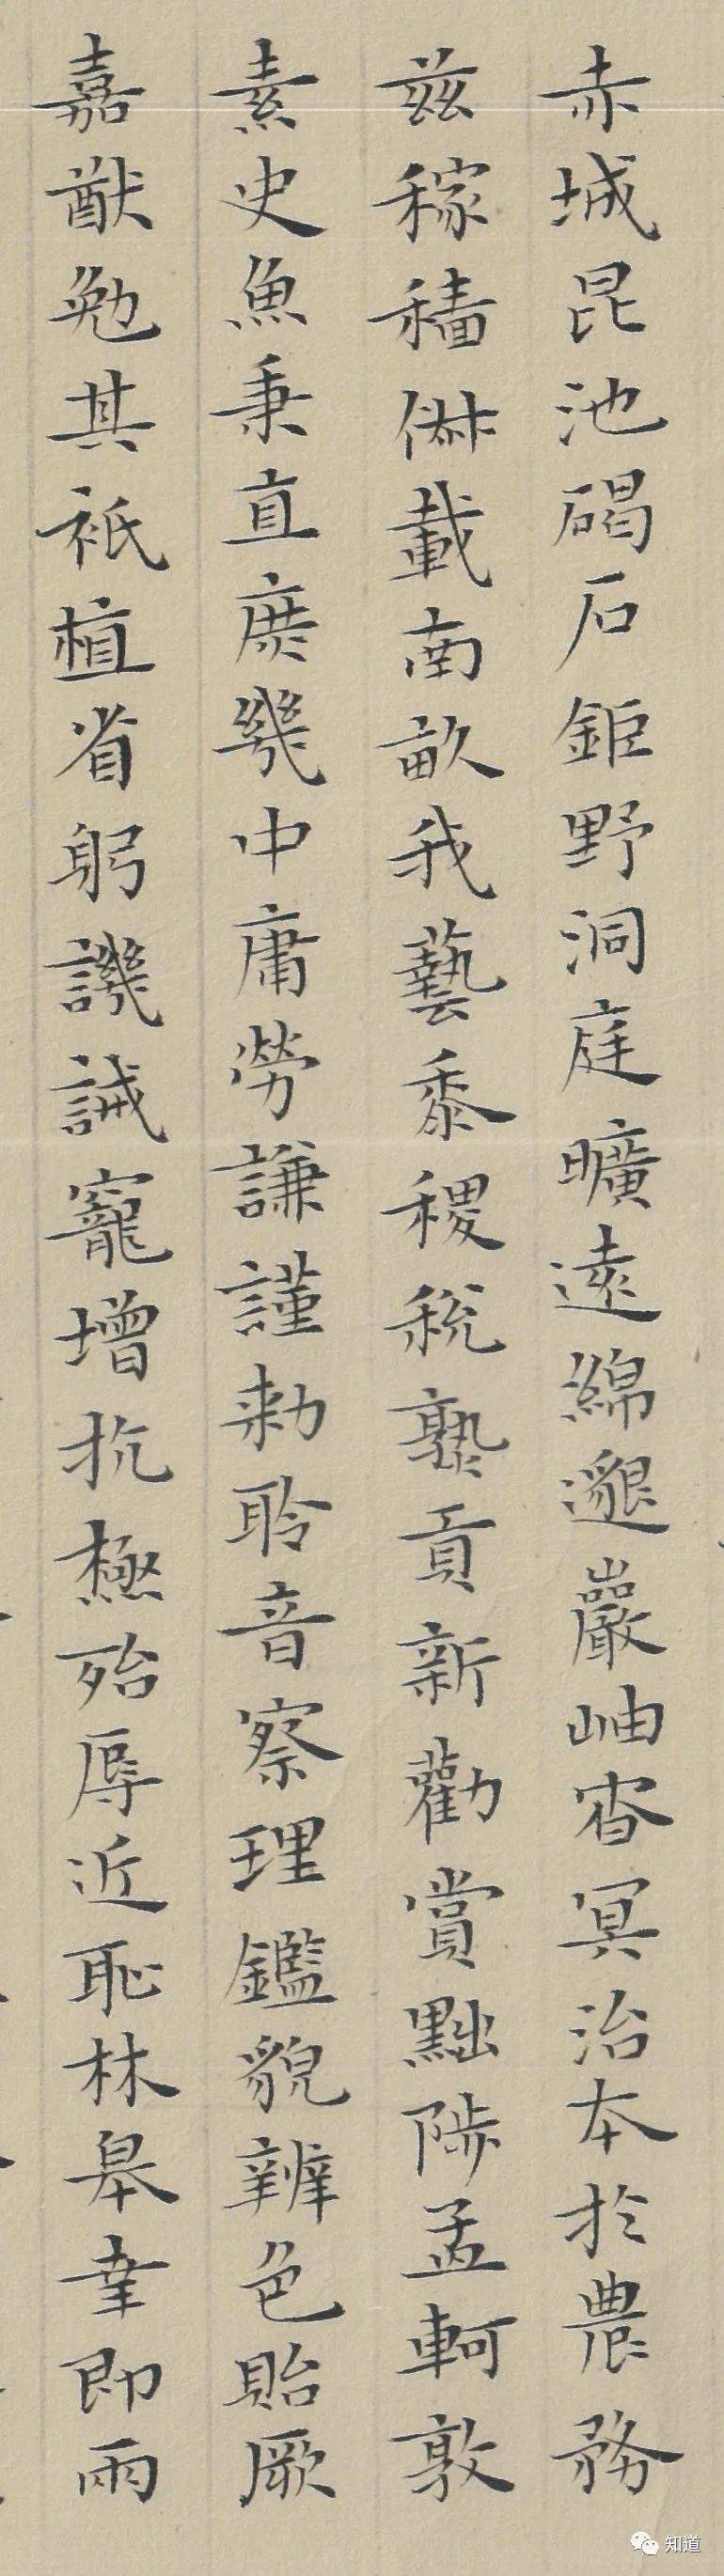 赤城昆池碣石鉅野洞庭曠遠綿邈巖岫杳冥治本於農務
茲稼穡俶載南畝我藝黍稷稅熟貢新勸賞黜陟孟軻敦
素史魚秉直庶幾中庸勞謙謹勅聆音察理鑑貌辨色貽厥
嘉猷勉其祇植省躬譏誡寵增抗極殆辱近恥林皋幸即兩
知道